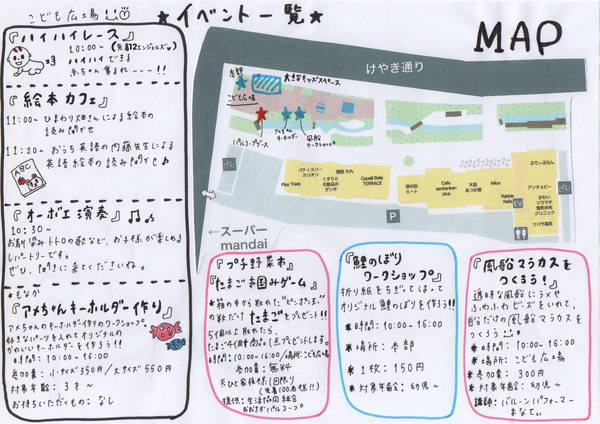 こども広場
★イベント一覧★
『ハイハイレース』
10:00〜(先着12エンジェルズ)
ハイハイできる
赤ちゃん集まれーーー!!
『絵本カフェ』
11:00〜 ひまわり畑さんによる絵本の
読み聞かせ
11:20〜 おうち英語の内藤先生による
英語絵本の読み聞かせ♪
ABC
『オーボエ演奏』
10:30〜
お馴染みトトロの歌など、お子様が楽しめる
レパートリーです。
ぜひ、聞きに来てくださいね。
『アメちゃんキーホルダー作り』
アメちゃんのキーホルダー作りのワークショップ。
好きなパーツを入れてオリジナルの
かわいいキーホルダーを作ろう!!
時間:10:00〜16:00
参加費:小サイズ350円/大サイズ550円
対象年齢:3才〜
お持ちいただくもの:なし
MAP
けやき通り
本部
大きなキッズスペース
こども広場
パルコープブース
アメちゃん
キーホルダー
風船
ワークショップ
パティスリー
カリオン
Plus Think
くすりと
化粧品の
ダンチ
Capelli Bella
TERRACE
津の田
ミート
Cafe
sentenkan
plus
天酒
あつが酒
felice
Robbie
Nails
EV
ぷでぃぷらん
アンチョビー
きわい
ソウマチ
整形外科
クリニック
ツバサ薬局
P
←スーパー
mandai
『プチ野菜市』
『たまご掴みゲーム』
★箱の中から取れた"ピンポン玉"
の数だけたまごをプレゼント!!
5個以上取れたら、
時間:10:00〜16:00/場所:こども広場
参加費:無料
※ひと家族様1回限り
(先着100名様!!)
提供:生活協同組合
おおさかパルコープ
『鯉のぼり
ワークショップ』
折り紙をちぎってはって
オリジナル鯉のぼりを作ろう!!
★時間:10:00〜16:00
★場所:本部
★1枚:150円
★対象年齢:幼児〜
『風船マラカスを
つくろう!』
透明な風船にうえや
ふわふわビーズをいれて、
自分だけの風船マラカスを
つくろう!
★時間:10:00〜16:00
★場所:こども広場
★参加費:300円
★対象年齢:幼児〜
講師:バルーンパフォーマー
まなてぃ